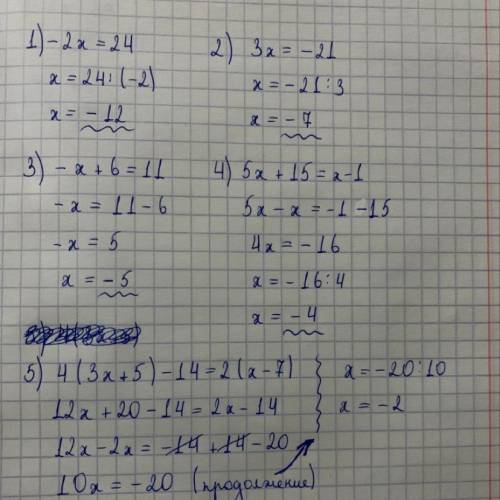 1) -2x = 24
x = 24 : (-2)
x = -12
2) 3x = -21
x = -21 : 3
x = -7
3) -x + 6 = 11
-x = 11 - 6
-x = 5
x = -5
4) 5x + 15 = x - 1
5x - x = -1 - 15
4x = -16
x = -16 : 4
x = -4
5) 4(3x + 5) - 14 = 2(x - 7)
12x + 20 - 14 = 2x - 14
12x - 2x = -14 + 14 - 20
10x = -20 (продолжение)
x = -20 : 10
x = -2